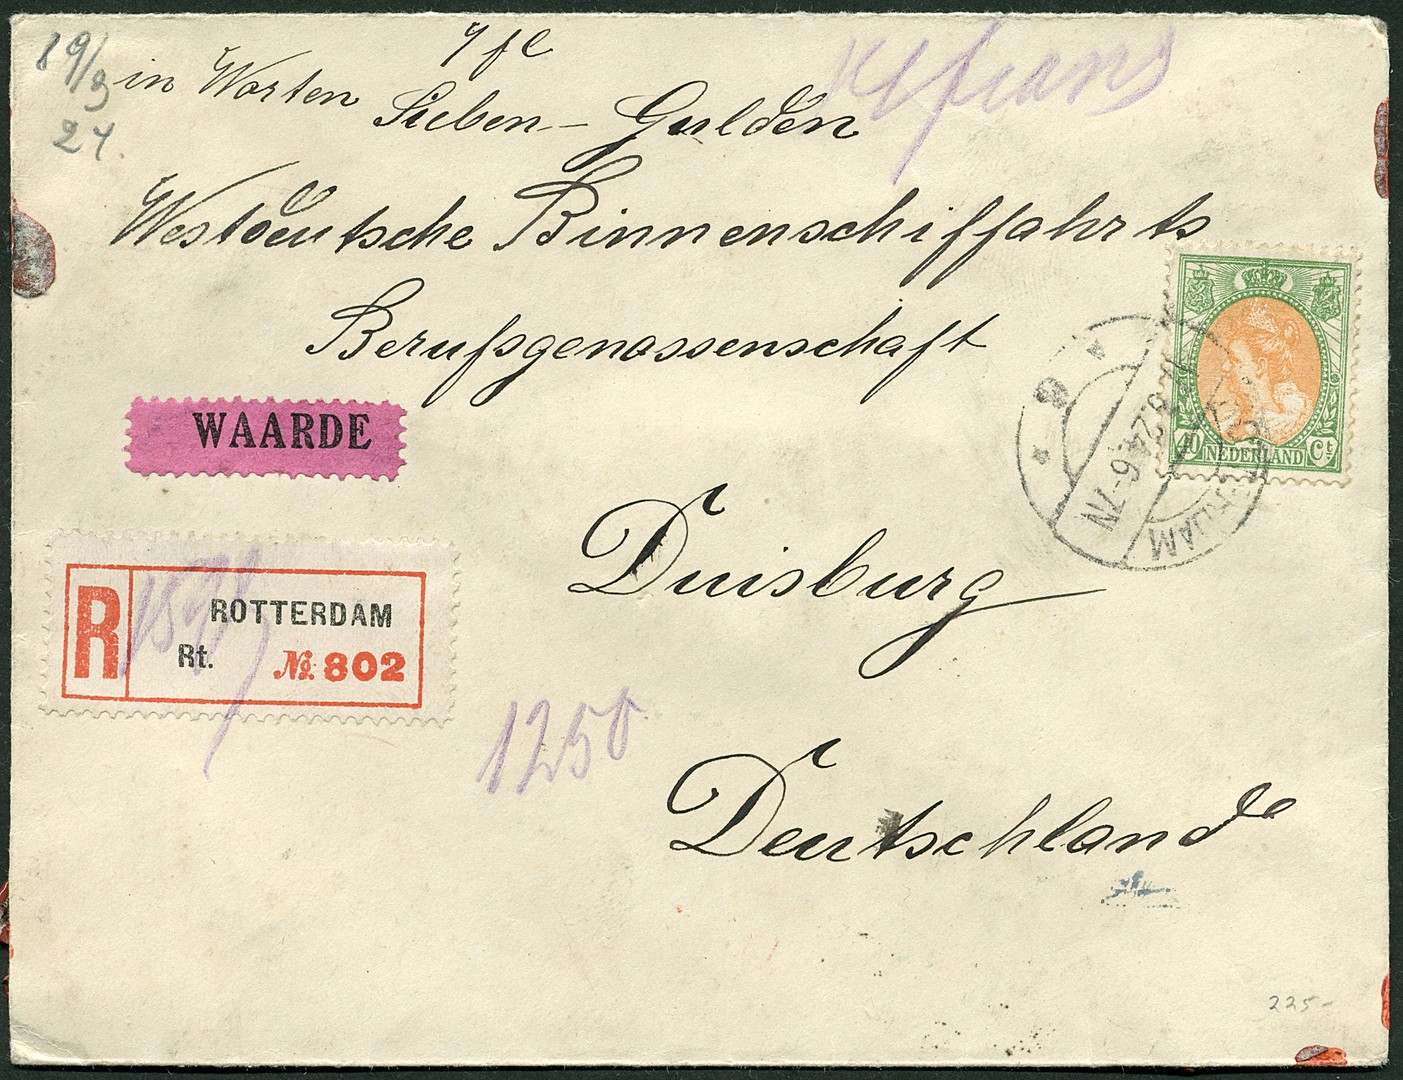 19/3
24.
7 fl
in Worten Sieben - Gulden
14 francs
Westdeutsche Binnenschiffahrts
Berufsgenossenschaft
WAARDE
40 Ct
NEDERLAND
ROTTERDAM
24.6-7N
Duisburg
R
ROTTERDAM
Rt. No. 802
1250
Deutschland
225-